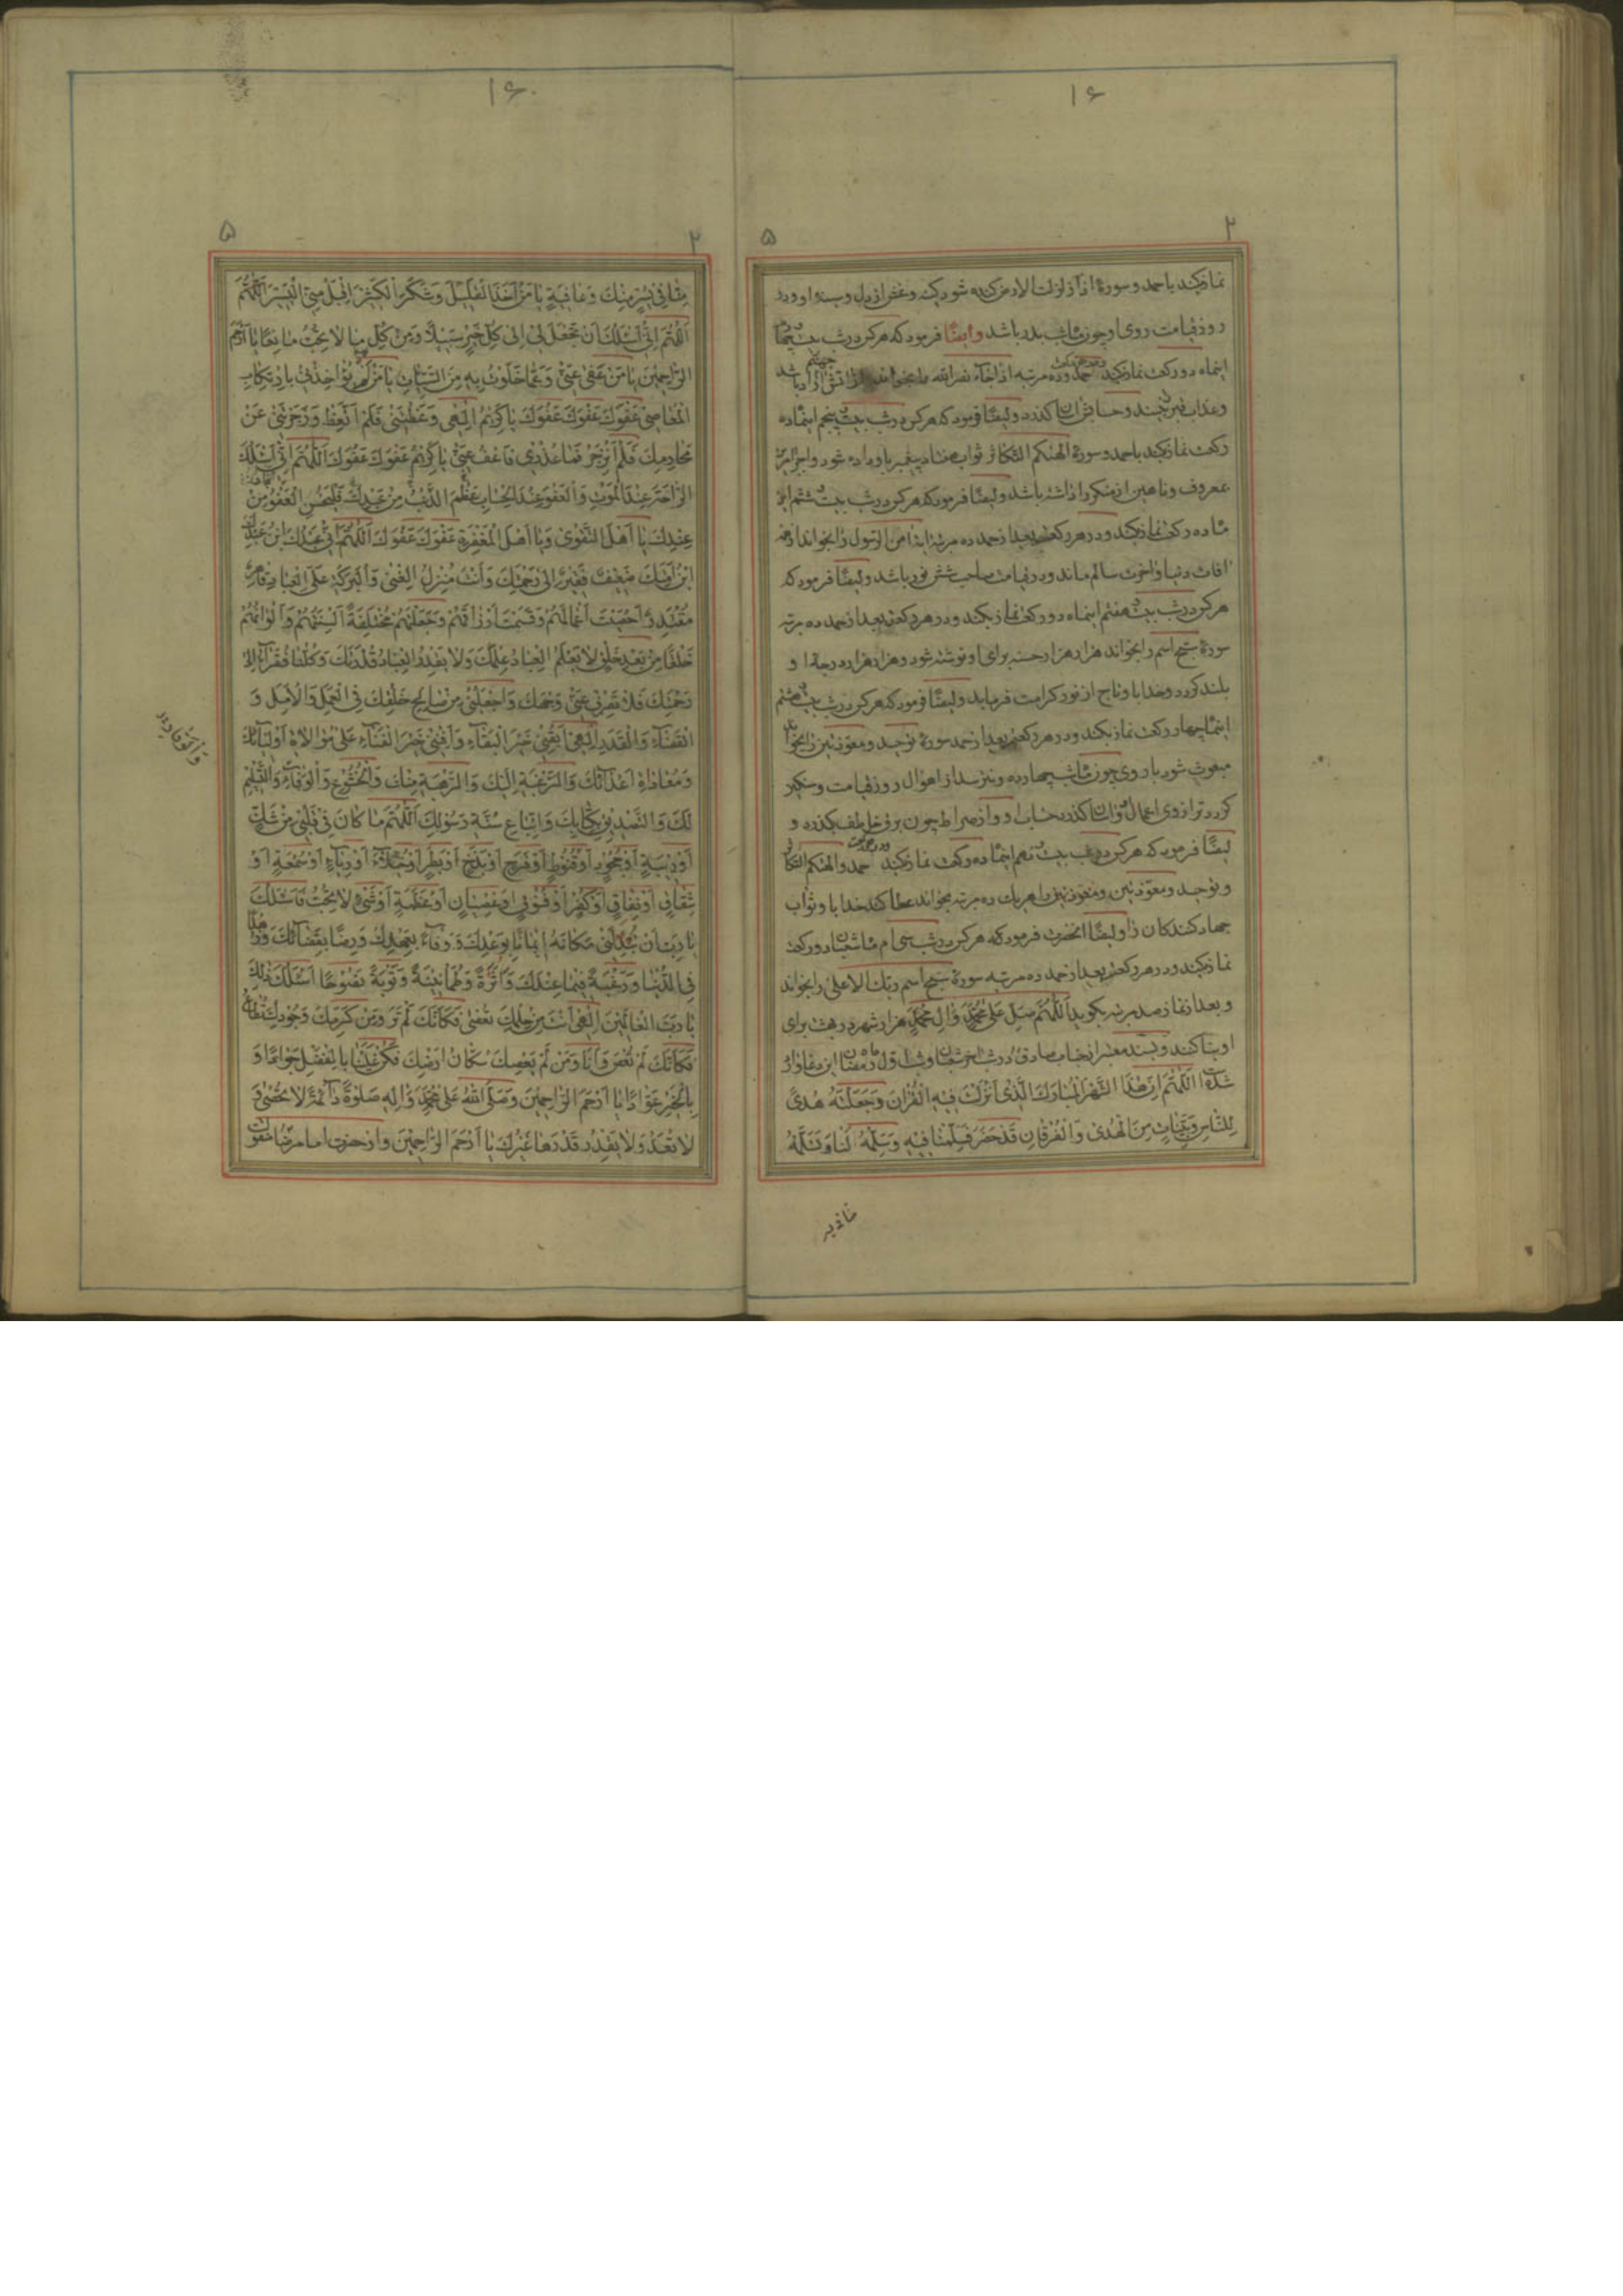 ۱۶
۲
۵
نماز بکند باحمد و سورهٔ اذا زلزلت الارض کنده شود کینه و غش از دل و سینه او و در
روز قیامت روی او چون ماه شب بدر باشد و ایضًا فرمود که هر کس در شب بیست چهارم
اینماه دو رکعت نماز بکند حمد و ده مرتبه اذا جاء نصر الله را بخواند از آتش جهنم آزاد باشد
و عذاب قبر نبیند و حسابش آسان گذرد و ایضًا فرمود که هر کس در شب بیست پنجم اینماه ده
رکعت نماز بکند باحمد و سورهٔ الهیکم التکاثر ثواب هفتاد پیغمبر باو داده شود و اجر امر
بمعروف و ناهین از منکر را داشته باشد و ایضًا فرمود که هر کس در شب بیست ششم این
ماه ده رکعت نماز بکند و در هر رکعت بعد از حمد ده مرتبه آیه آمن الرسول را بخواند از همه
آفات دنیا و آخرت سالم ماند و در قیامت صاحب شش نور باشد و ایضًا فرمود که
هر کس در شب بیست هفتم اینماه دو رکعت نماز بکند و در هر رکعت بعد از حمد ده مرتبه
سورهٔ سبح اسم را بخواند هزار هزار حسنه برای او نوشته شود و هزار هزار درجهٔ او
بلند گردد و خدا باو تاج از نور کرامت فرماید و ایضًا فرمود که هر کس در شب بیست هشتم
اینماه چهار رکعت نماز بکند و در هر رکعت بعد از حمد سورهٔ توحید و معوذتین را بخواند
مبعوث شود با روی چون ماه شب چهارده و نترسد از اهوال روز قیامت و سنگین
گردد ترازوی اعمال او و آسان گذرد حساب او و از صراط چون برق خاطف بگذرد و
ایضًا فرمود که هر کس در شب بیست نهم اینماه ده رکعت نماز بکند و در هر رکعت حمد و الهیکم التکاثر
و توحید و معوذتین را هر یک ده مرتبه بخواند عطا کند خدا باو ثواب
جهاد کنندکان را و ایضًا آنحضرت فرمود که هر کس در شب سی ام ماه شعبان دو رکعت
نماز بکند و در هر رکعت بعد از حمد ده مرتبه سورهٔ سبح اسم ربک الاعلی را بخواند
و بعد از نماز صد مرتبه بگوید اَللّٰهُمَّ صَلِّ عَلیٰ مُحَمَّدٍ وَ اٰلِ مُحَمَّدٍ هزار شهر در بهشت برای
او بنا کنند و بسند معتبر از جناب صادق در شب آخر شعبان و شب اول ماه رمضان این دعا وارد
شده اَللّٰهُمَّ اِنَّ هٰذَا الشَّهْرَ الْمُبٰارَكَ الَّذی اُنْزِلَتْ فِیهِ الْقُرْاٰنُ وَ جَعَلْتَهُ هُدیً
لِلنّٰاسِ وَ بَیِّنٰاتٍ مِنَ الْهُدیٰ وَ الْفُرْقٰانِ قَدْ حَضَرَ فَسَلِّمْنٰا فِیهِ وَ سَلِّمْهُ لَنٰا وَ تَسَلَّمْهُ
۱۶۰
۲
۵
مِنّٰا فِی یُسْرٍ مِنْكَ وَ عٰافِیَةٍ یٰا مَنْ اَخَذَ الْقَلِیلَ وَ شَكَرَ الْكَثِیرَ اِقْبَلْ مِنِّی الْیَسِیرَ اَللّٰهُمَّ
اَللّٰهُمَّ اِنّی اَسْئَلُكَ اَنْ تَجْعَلَ لِی اِلیٰ كُلِّ خَیْرٍ سَبِیلًا وَ مِنْ كُلِّ مٰا لٰا تُحِبُّ مٰانِعًا یٰا اَرْحَمَ
الرّٰاحِمِینَ یٰا مَنْ عَفیٰ عَنِّی وَ عَمّٰا خَلَوْتُ بِهِ مِنَ السَّیِّئٰاتِ یٰا مَنْ لَمْ یُؤٰاخِذْنِی بِارْتِكٰابِ
الْمَعٰاصِی عَفْوَكَ عَفْوَكَ عَفْوَكَ یٰا كَرِیمُ اِلٰهِی وَعَظْتَنِی فَلَمْ اَتَّعِظْ وَ زَجَرْتَنِی عَنْ
مَحٰارِمِكَ فَلَمْ اَنْزَجِرْ فَمٰا عُذْرِی فَاعْفُ عَنِّی یٰا كَرِیمُ عَفْوَكَ عَفْوَكَ اَللّٰهُمَّ اِنّی اَسْئَلُكَ
الرّٰاحَةَ عِنْدَ الْمَوْتِ وَ الْعَفْوَ عِنْدَ الْحِسٰابِ عَظُمَ الذَّنْبُ مِنْ عَبْدِكَ فَلْیَحْسُنِ الْعَفْوُ مِنْ
عِنْدِكَ یٰا اَهْلَ التَّقْویٰ وَ یٰا اَهْلَ الْمَغْفِرَةِ عَفْوَكَ عَفْوَكَ اَللّٰهُمَّ اِنّی عَبْدُكَ ابْنُ عَبْدِكَ
ابْنُ اَمَتِكَ ضَعِیفٌ فَقِیرٌ اِلیٰ رَحْمَتِكَ وَ اَنْتَ مُنْزِلُ الْغِنیٰ وَ الْبَرَكَةِ عَلَی الْعِبٰادِ قٰاهِرٌ
مُقْتَدِرٌ اَحْصَیْتَ اَعْمٰالَهُمْ وَ قَسَمْتَ اَرْزٰاقَهُمْ وَ جَعَلْتَهُمْ مُخْتَلِفَةً اَلْسِنَتُهُمْ وَ اَلْوٰانُهُمْ
خَلْقًا مِنْ بَعْدِ خَلْقٍ لٰا یَعْلَمُ الْعِبٰادُ عِلْمَكَ وَ لٰا یَقْدِرُ الْعِبٰادُ قَدْرَكَ وَ كُلُّنٰا فُقَرٰاءُ اِلیٰ
رَحْمَتِكَ فَلٰا تَصْرِفْ عَنِّی وَجْهَكَ وَ اجْعَلْنِی مِنْ صٰالِحِ خَلْقِكَ فِی الْعَمَلِ وَ الْاَمَلِ وَ
الْقَضٰاءِ وَ الْقَدَرِ اِلٰهِی اَبْقِنِی خَیْرَ الْبَقٰاءِ وَ اَفْنِنِی خَیْرَ الْفَنٰاءِ عَلیٰ مُوٰالٰاةِ اَوْلِیٰائِكَ
وَ مُعٰادٰاةِ اَعْدٰائِكَ وَ الرَّغْبَةِ اِلَیْكَ وَ الرَّهْبَةِ مِنْكَ وَ الْخُشُوعِ وَ الْوَفٰاءِ وَ التَّسْلِیمِ
لَكَ وَ التَّصْدِیقِ بِكِتٰابِكَ وَ اتِّبٰاعِ سُنَّةِ رَسُولِكَ اَللّٰهُمَّ مٰا كٰانَ فِی قَلْبِی مِنْ شَكٍّ
اَوْ رِیبَةٍ اَوْ جُحُودٍ اَوْ قُنُوطٍ اَوْ فَرَحٍ اَوْ بَذَخٍ اَوْ بَطَرٍ اَوْ خُیَلٰاءَ اَوْ رِیٰاءٍ اَوْ سُمْعَةٍ اَوْ
شِقٰاقٍ اَوْ نِفٰاقٍ اَوْ كُفْرٍ اَوْ فُسُوقٍ اَوْ عِصْیٰانٍ اَوْ عَظَمَةٍ اَوْ شَیْءٍ لٰا تُحِبُّ فَاَسْئَلُكَ
یٰا رَبِّ اَنْ تُبَدِّلَنِی مَكٰانَهُ اِیمٰانًا بِوَعْدِكَ وَ وَفٰاءً بِعَهْدِكَ وَ رِضًا بِقَضٰائِكَ وَ زُهْدًا
فِی الدُّنْیٰا وَ رَغْبَةً فِیمٰا عِنْدَكَ وَ اَثَرَةً وَ طُمَأْنِینَةً وَ تَوْبَةً نَصُوحًا اَسْئَلُكَ ذٰلِكَ
یٰا رَبَّ الْعٰالَمِینَ اِلٰهِی اَنْتَ مِنْ حِلْمِكَ تُعْصیٰ فَكَاَنَّكَ لَمْ تَرَ وَ مِنْ كَرَمِكَ وَ جُودِكَ تُطٰاعُ
فَكَاَنَّكَ لَمْ تُعْصَ وَ اَنَا وَ مَنْ لَمْ یَعْصِكَ سُكّٰانُ اَرْضِكَ فَكُنْ عَلَیْنٰا بِالْفَضْلِ جَوٰادًا وَ
بِالْخَیْرِ عَوّٰادًا یٰا اَرْحَمَ الرّٰاحِمِینَ وَ صَلَّی اللّٰهُ عَلیٰ مُحَمَّدٍ وَ اٰلِهِ صَلٰوةً دٰائِمَةً لٰا تُحْصیٰ وَ
لٰا تُعَدُّ وَ لٰا یَقْدِرُ قَدْرَهٰا غَیْرُكَ یٰا اَرْحَمَ الرّٰاحِمِینَ و از حضرت امام رضا منقول